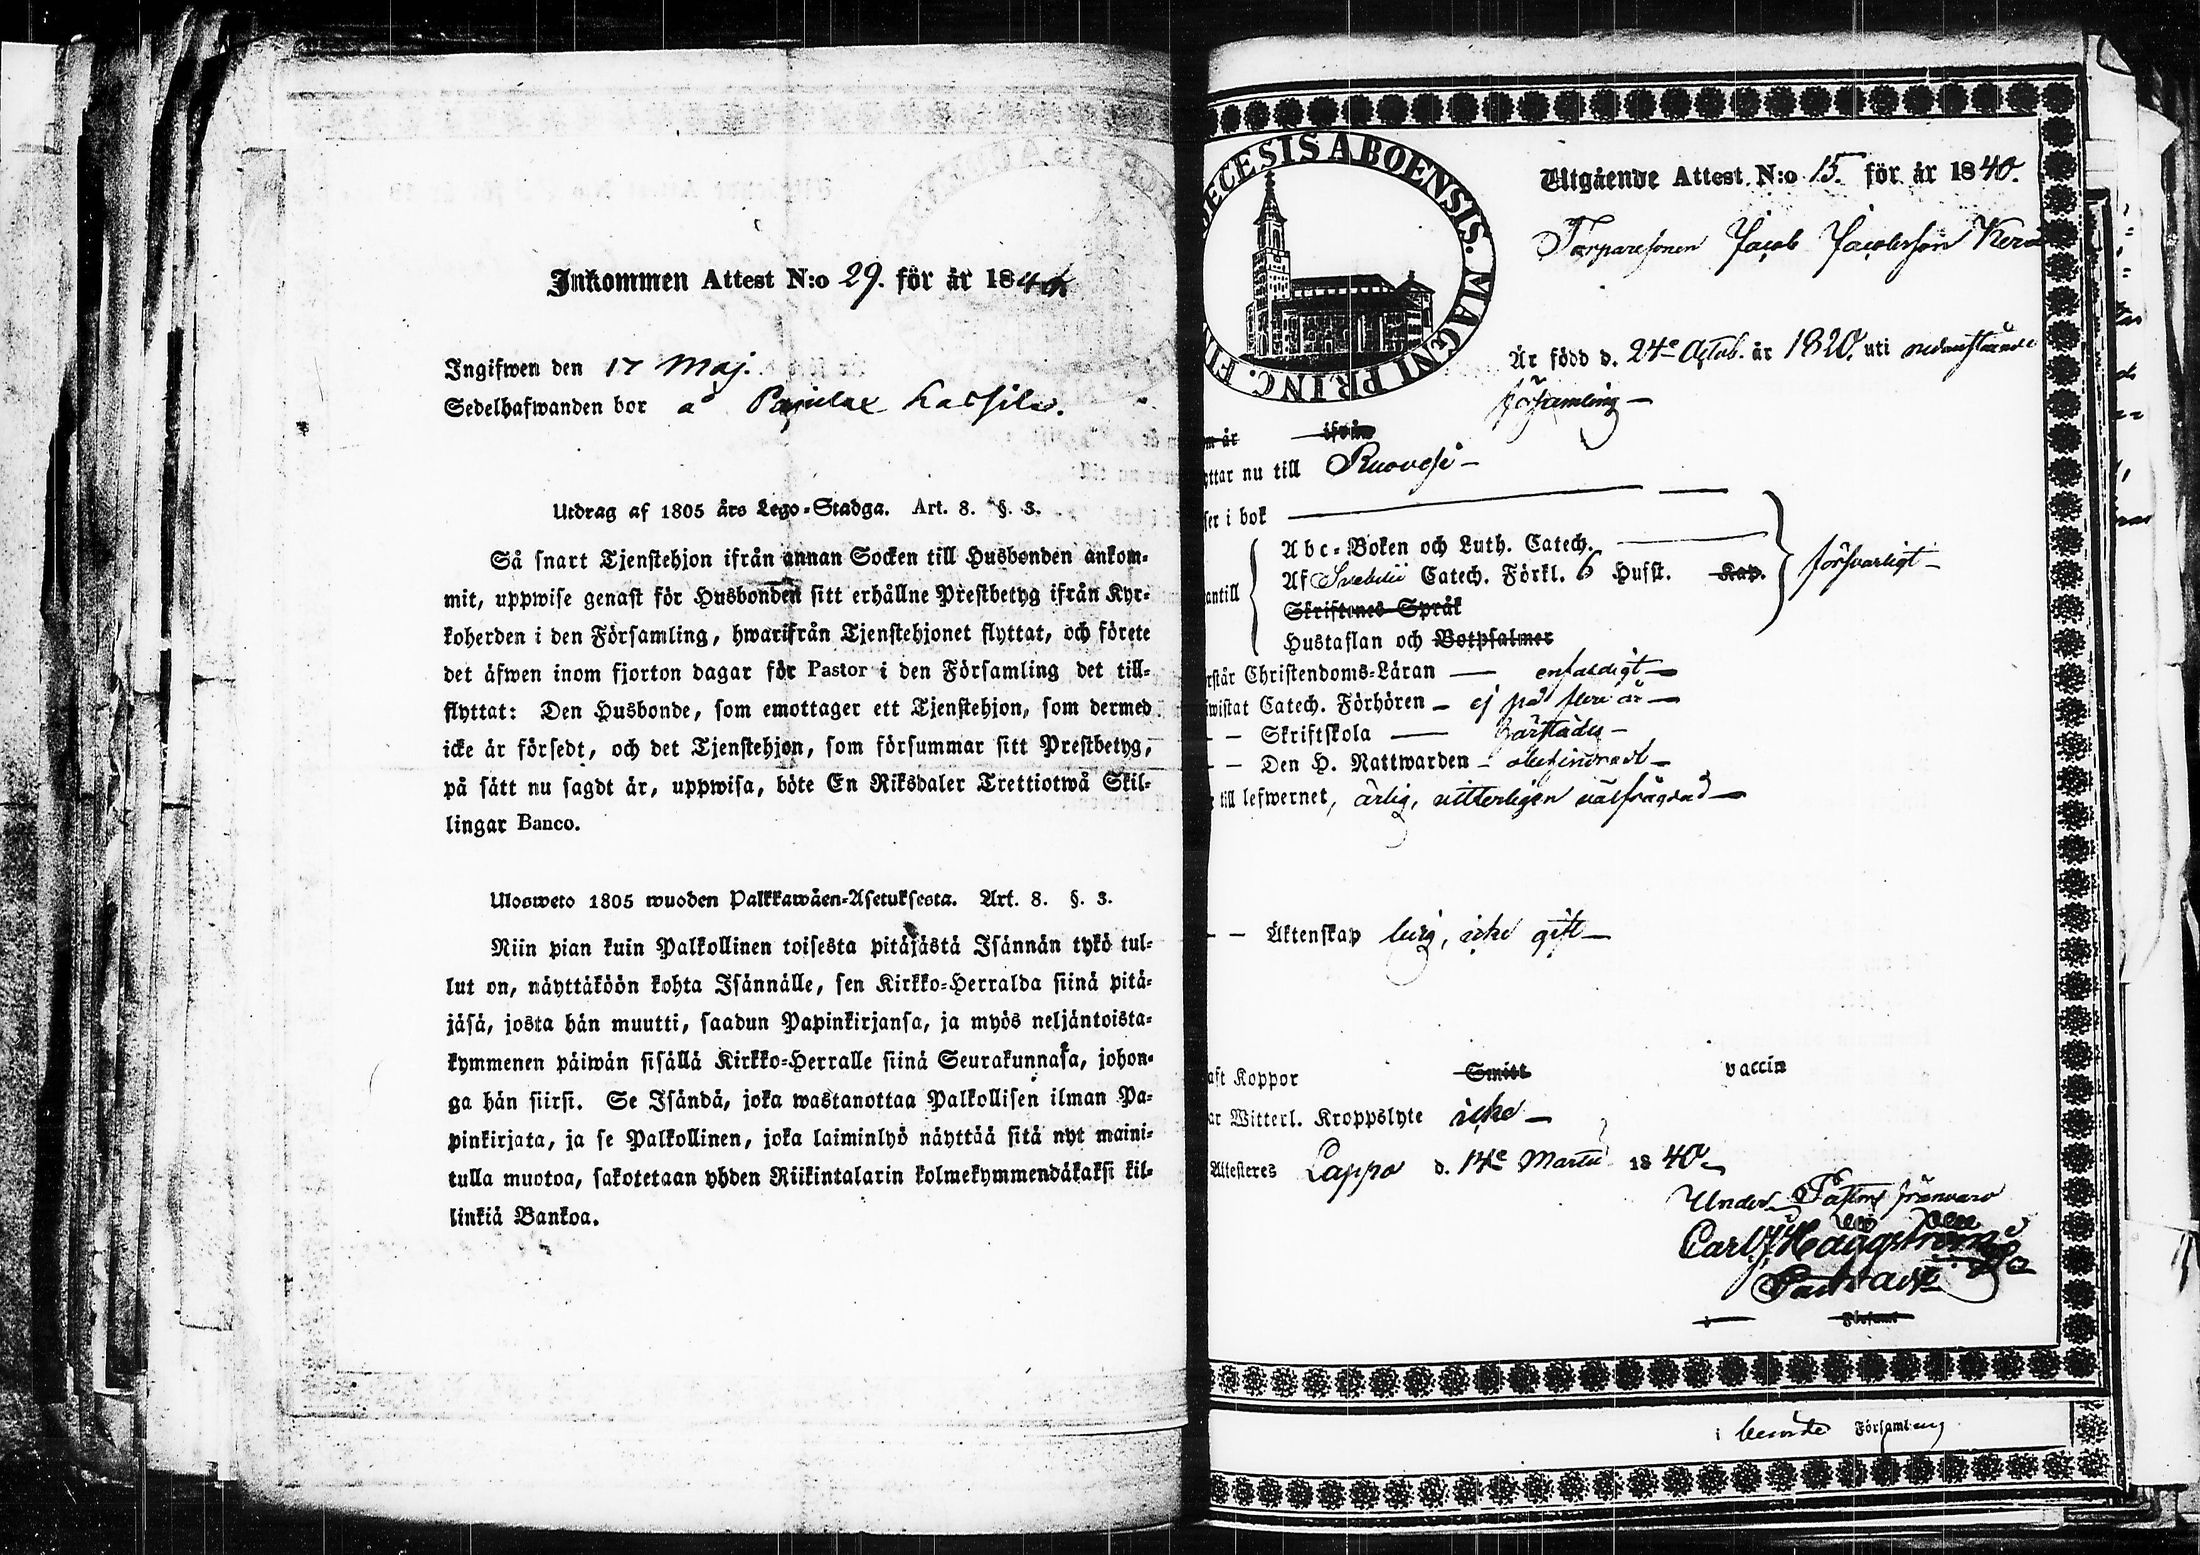 Inkommen Attest N:o 29. för år 1840.
Ingifwen den 17 Maj.
Sedelhafwanden bor å
Utdrag af 1805 års Lego-Stadga. Art. 8. §. 3.
Så snart Tjenstehjon ifrån annan Socken till Husbonden ankom-
mit, uppwise genast för Husbonden sitt erhållne Prestbetyg ifrån Kyr-
koherden i den Församling, hwarifrån Tjenstehjonet flyttat, och förete
det äfwen inom fjorton dagar för Pastor i den Församling det till-
flyttat: Den Husbonde, som emottager ett Tjenstehjon, som dermed
icke är försedt, och det Tjenstehjon, som försummar sitt Prestbetyg,
på sätt nu sagdt är, uppwisa, böte En Riksdaler Trettiotwå Skil-
lingar Banco.
Ulosweto 1805 wuoden Palkkawäen-Asetuksesta. Art. 8. §. 3.
Niin pian kuin Palkollinen toisesta pitäjästä Isännän tykö tul-
lut on, näyttäköön kohta Isännälle, sen Kirkko-Herralda siinä pitä-
jäsä, josta hän muutti, saadun Papinkirjansa, ja myös neljäntoista-
kymmenen päiwän sisällä Kirkko-Herralle siinä Seurakunnasa, johon-
ga hän siirsi. Se Isändä, joka wastanottaa Palkollisen ilman Pa-
pinkirjata, ja se Palkollinen, joka laiminlyö näyttää sitä nyt maini-
tulla muotoa, sakotetaan yhden Riikintalarin kolmekymmendäkaksi kil-
linkiä Bankoa.
ECESIS ABOENSIS. MAGNI PRINC. FIN
Utgående Attest N:o 15. för år 1840.
Torparesonen Jacob Jacobsson
Är född d. 24de Octob. år 1820. uti nedanstående
församling
m år ifrån
yttar nu till Ruovesi
ser i bok
Abc-Boken och Luth. Catech.
Af Svebilii Catech. Förkl. 6 Hufst. Kap. försvarligt
antill
Skriftenes Språk
Hustaflan och Botpsalmer
rstår Christendoms-Läran enfaldigt
wistat Catech. Förhören ej på flere år
Skriftskola
Den H. Nattwarden obehindradt
till lefwernet, ärlig, witterligen välfrägdad
Äktenskap ledig, icke gift
aft Koppor Smitt vaccin
ar Witterl. Kroppslyte icke
Attesteres Lappo d. 14de Martii 1840.
Under Pastors frånvaro
Carl J Häggström
i Församl
i berörde Församling